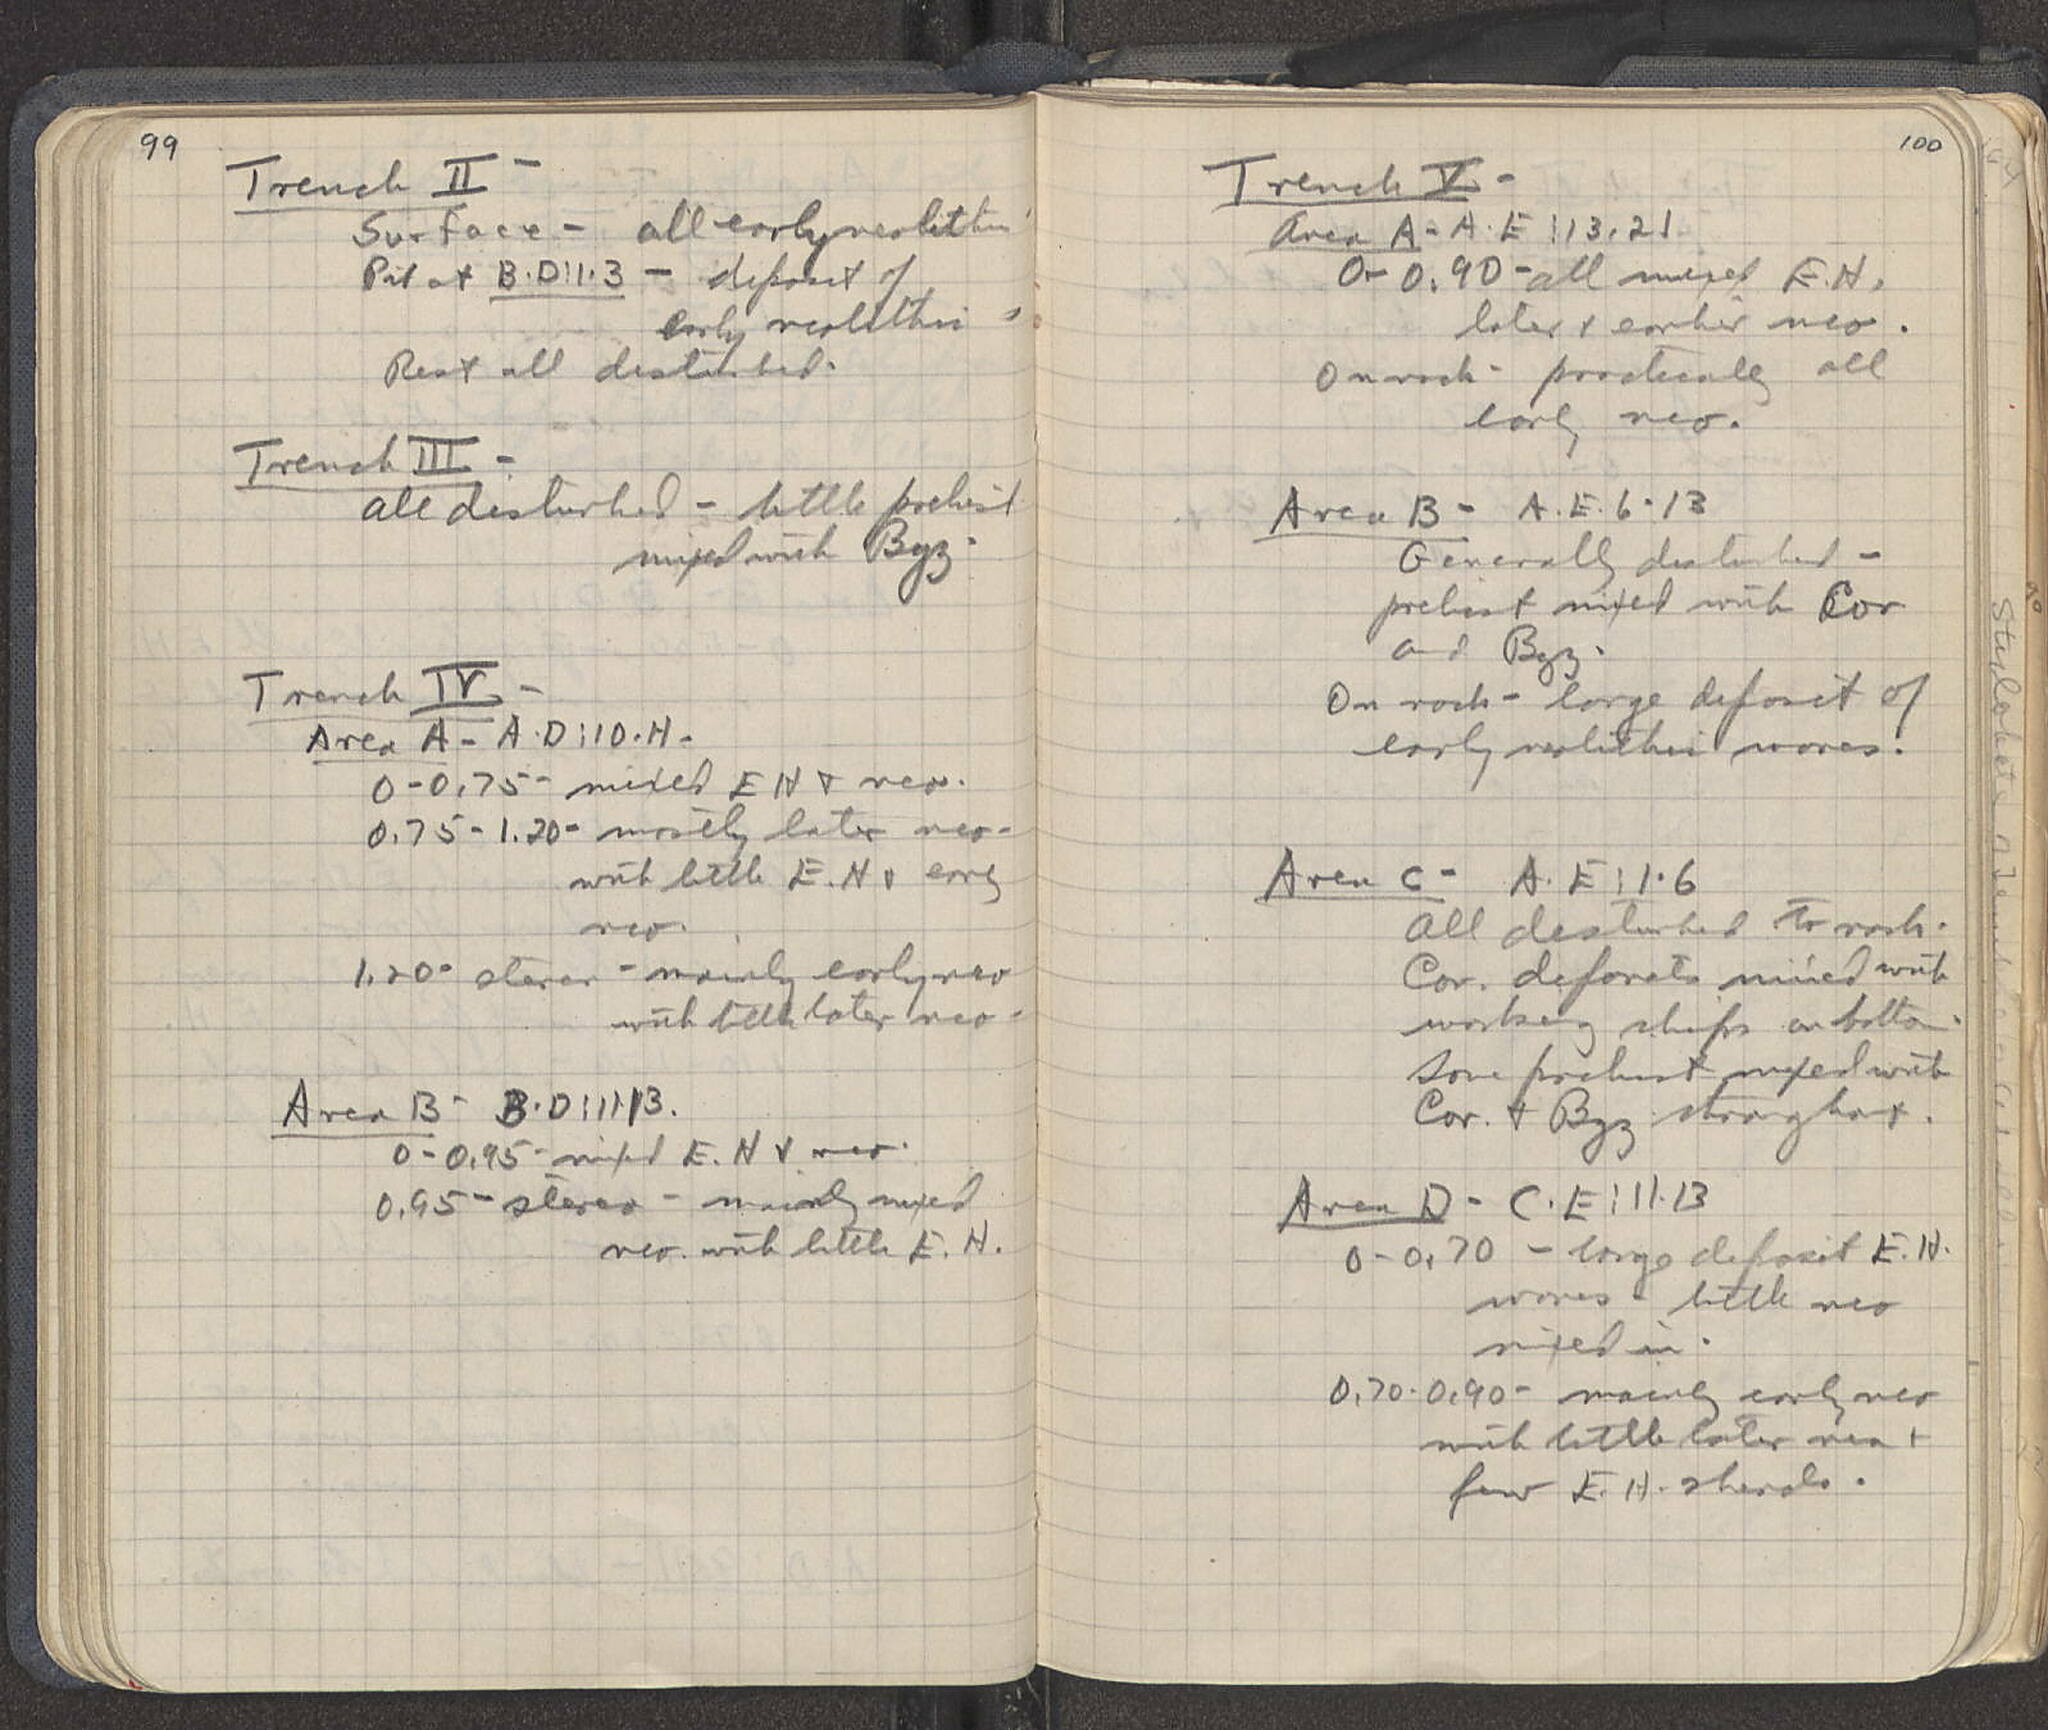 99
Trench II -
Surface - all early neolithic
Pit at B-D:1-3 - deposit of
early neolithic
Rest all disturbed.
Trench III -
All disturbed - little prehist
mixed with Byz.
Trench IV -
Area A - A-D:10-H-
0-0.75 - mixed EH & neo.
0.75-1.20 - mostly later neo-
with little E.H & early
neo.
1.20- stereo - mainly early neo
with little later neo-
Area B - B-D:11-13.
0-0.95 - mixed E.H & neo.
0.95 - stereo - mainly mixed
neo. with little E.H.
100
Trench V -
Area A - A-E:13-21
0-0.90 - all mixed E.H.
later & earlier neo.
On rock - practically all
early neo.
Area B - A.E.6-13
Generally disturbed -
prehist mixed with Cor
and Byz.
On rock - large deposit of
early neolithic wares.
Area C - A-E:1-6
All disturbed to rock.
Cor. deposits mixed with
working chips on bottom.
Some prehist mixed with
Cor. & Byz throughout.
Area D - C-E:11-13
0-0.70 - large deposit E.H.
wares - little neo
mixed in.
0.70-0.90 - mainly early neo
with little later neo +
few E.H. sherds.